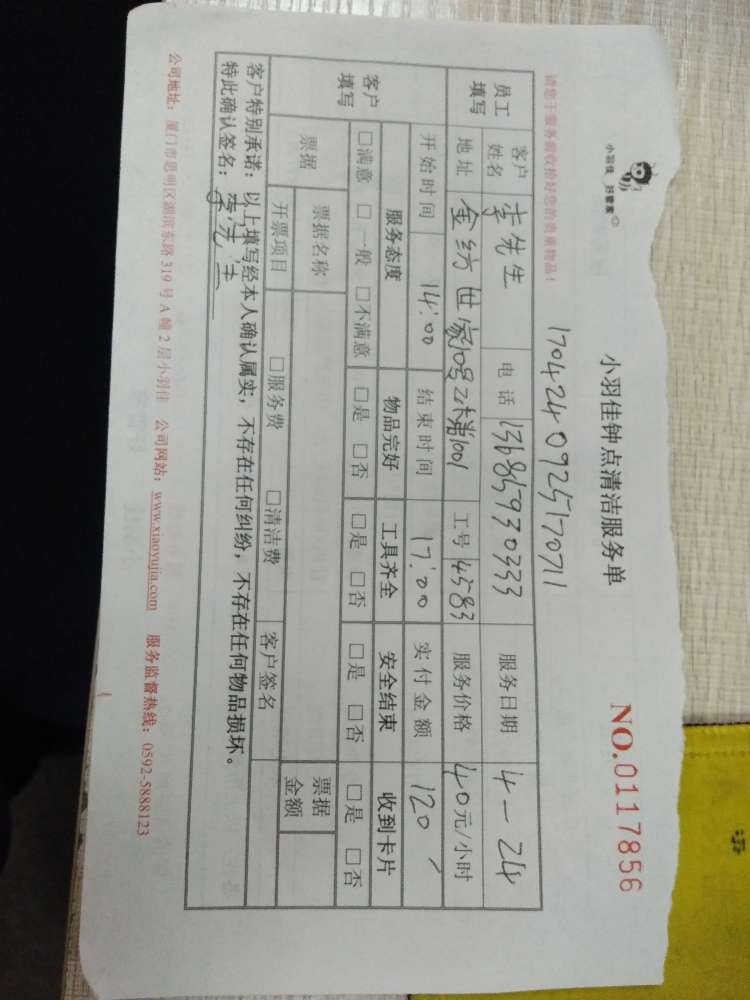 小羽佳 好管家
小羽佳钟点清洁服务单
NO.0117856
请您于服务前收拾好您的贵重物品!
1704240925170711
员工填写 客户姓名 李先生 电话 13685930333 服务日期 4-24
地址 金纺世家10号2梯1001 工号 4583 服务价格 40元/小时
开始时间 14:00 结束时间 17:00 实付金额 120
客户填写 服务态度 物品完好 工具齐全 安全结束 收到卡片
□满意 □一般 □不满意 □是 □否 □是 □否 □是 □否 □是 □否
票据 票据名称 票据金额
开票项目 □服务费 □清洁费 客户签名
客户特别承诺:以上填写经本人确认属实,不存在任何纠纷,不存在任何物品损坏。
特此确认签名:李先生
公司地址:厦门市思明区湖滨东路319号A幢2层小羽佳 公司网站:www.xiaoyujia.com 服务监督热线:0592-5888123